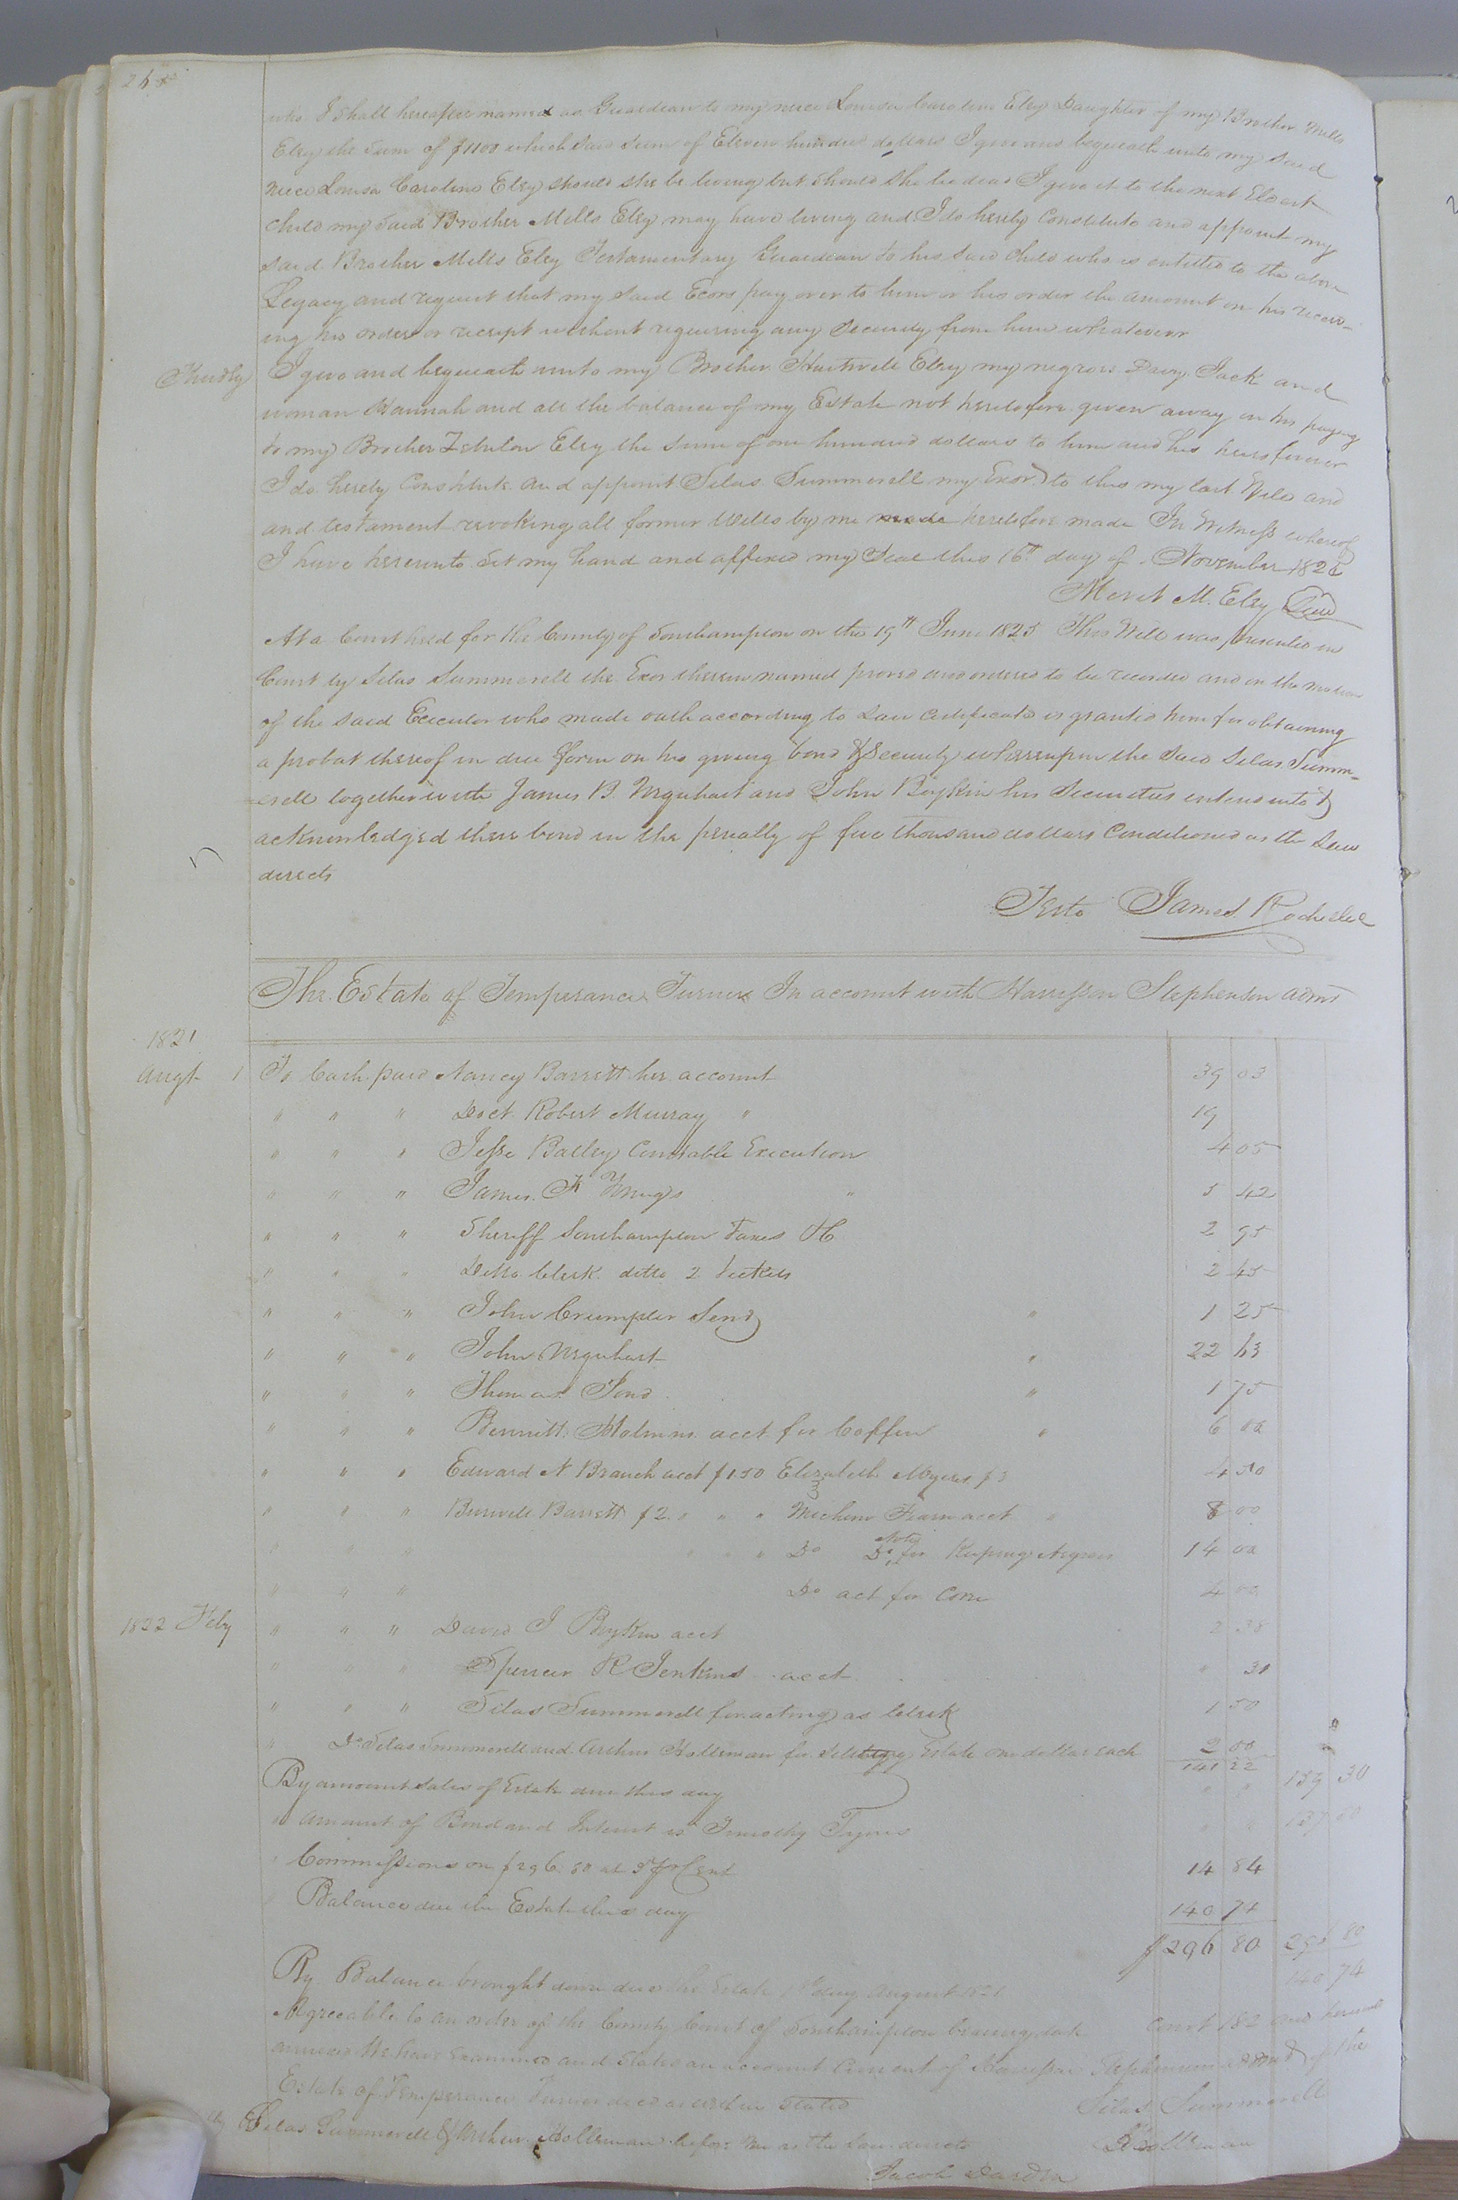 who I shall hereafter named as Guardian to my niece Louisa Caroline Eley Daughter of my Brother Mills
Eley the sum of $1100 which said sum of Eleven hundred dollars I give and bequeath unto my said
niece Louisa Caroline Eley should she be living but should she be dead I give it to the next Eldest
child my said Brother Mills Eley may have living and I do hereby Constitute and appoint my
said Brother Mills Eley Testamentary Guardian to his said Child who is entitled to the above
Legacy and request that my said Ecors pay over to him or his order the amount on his receiv-
ing his order or receipt without requiring any security from him whatever
Thirdly I give and bequeath unto my Brother Huitwell Eley my negroes Davy Jack and
woman Hannah and all the balance of my Estate not heretofore given away on his paying
to my Brother Zebulon Eley the sum of one hundred dollars to him and his heirs forever
I do hereby Constitute and appoint Silas Summerell my Exor to this my last Will and
and testament revoking all former Wills by me made heretofore made In Witness whereof
I have hereunto set my hand and affixed my Seal this 16th day of November 182
M. Eley Seal
At a Court held for the County of Southampton on the 19th June 1825 This Will was presented in
Court by Silas Summerell the Exor therein named proved and ordered to be recorded and on the motion
of the said Executor who made oath according to Law Certificate is granted him for obtaining
a probat thereof in due form on his giving bond & Security whereupon the said Silas Summ-
erell together with James B. Urquhart and John Boykin his Securities entered into &
acknowledged their bond in the penalty of five thousand dollars Conditioned as the Law
directs
Teste James Rochelle
The Estate of Temperance Turner In account with Harrison Stephenson admr
1821
Augt 1 To Cash paid Nancy Barrett her account 39 03
" " " Doct Robert Murray " 19
" " " Jesse Bailey Constable Execution 4 05
" " " James " 5 42
" " " Sheriff Southampton Taxes &C 2 95
" " " Ditto Clerk ditto 2 Tickets 2 45
" " " John Crumpler Senr " 1 25
" " " John Urquhart " 22 63
" " " Thomas Pond " 1 75
" " " Bennitt Holmes acct for Coffin " 6 00
" " " Edward N Branch acct $1.50 Elizabeth Myers $3 4 50
" " " Burwell Barrett $2 " " " acct " 8 00
" " " " " " Do Do for Keeping Negroes 14 00
" " " Do act for Corn 4 00
1822 Feby " " " David J Boykin acct 2 38
" " " Spencer R Jenkins acct " 31
" " " Silas Summerell for acting as Clerk 1 50
" Do Silas Summerell and Archer Holleman for Estate one dollar each 2 00
141 22
By amount sales of Estate due this day " " 159 30
" amount of Bond and Interest Timothy Tynes " " 137 50
" Commissions on $296.80 at 5 pr Cent 14 84
Balance due the Estate this day 140 74
$296 80 296 80
By Balance brought down due the Estate 1st day August 1821 140 74
Agreeable to an order of the County Court of Southampton bearing date Court 182 and hereunto
annexed We have examined and stated an account Current of Harrison Stephenson admr of the
Estate of Temperance Turner decd as within stated Silas Summerell
Silas Summerell & Archer Holleman before me as the Law directs Holleman
Jacob Darden